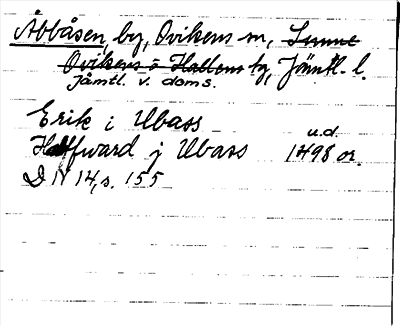 Åbbåsen, by, Ovikens sn, Sunne
Ovikens o Hallens tg, Jämtl. l.
Jämtl. v. doms.
Erik i Ubass
u.d.
Halfward j Ubass 1498 or.
DN 14, s. 155